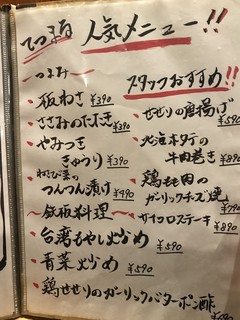 てつまる 人気メニュー!!
〜つまみ〜
・板わさ ¥390
・ささみのたたき ¥390
・やみつき
きゅうり ¥390
・わさび菜の
つんつん漬け ¥490
〜鉄板料理〜
・台湾もやし炒め ¥590
・青菜炒め ¥590
・鶏せせりのガーリックバターポン酢
スタッフおすすめ!!
・せせりの唐揚げ ¥590
・北海ホタテの
牛肉巻き ¥890
・鶏もも肉の
ガーリックチーズ焼 ¥790
・サイコロステーキ ¥890